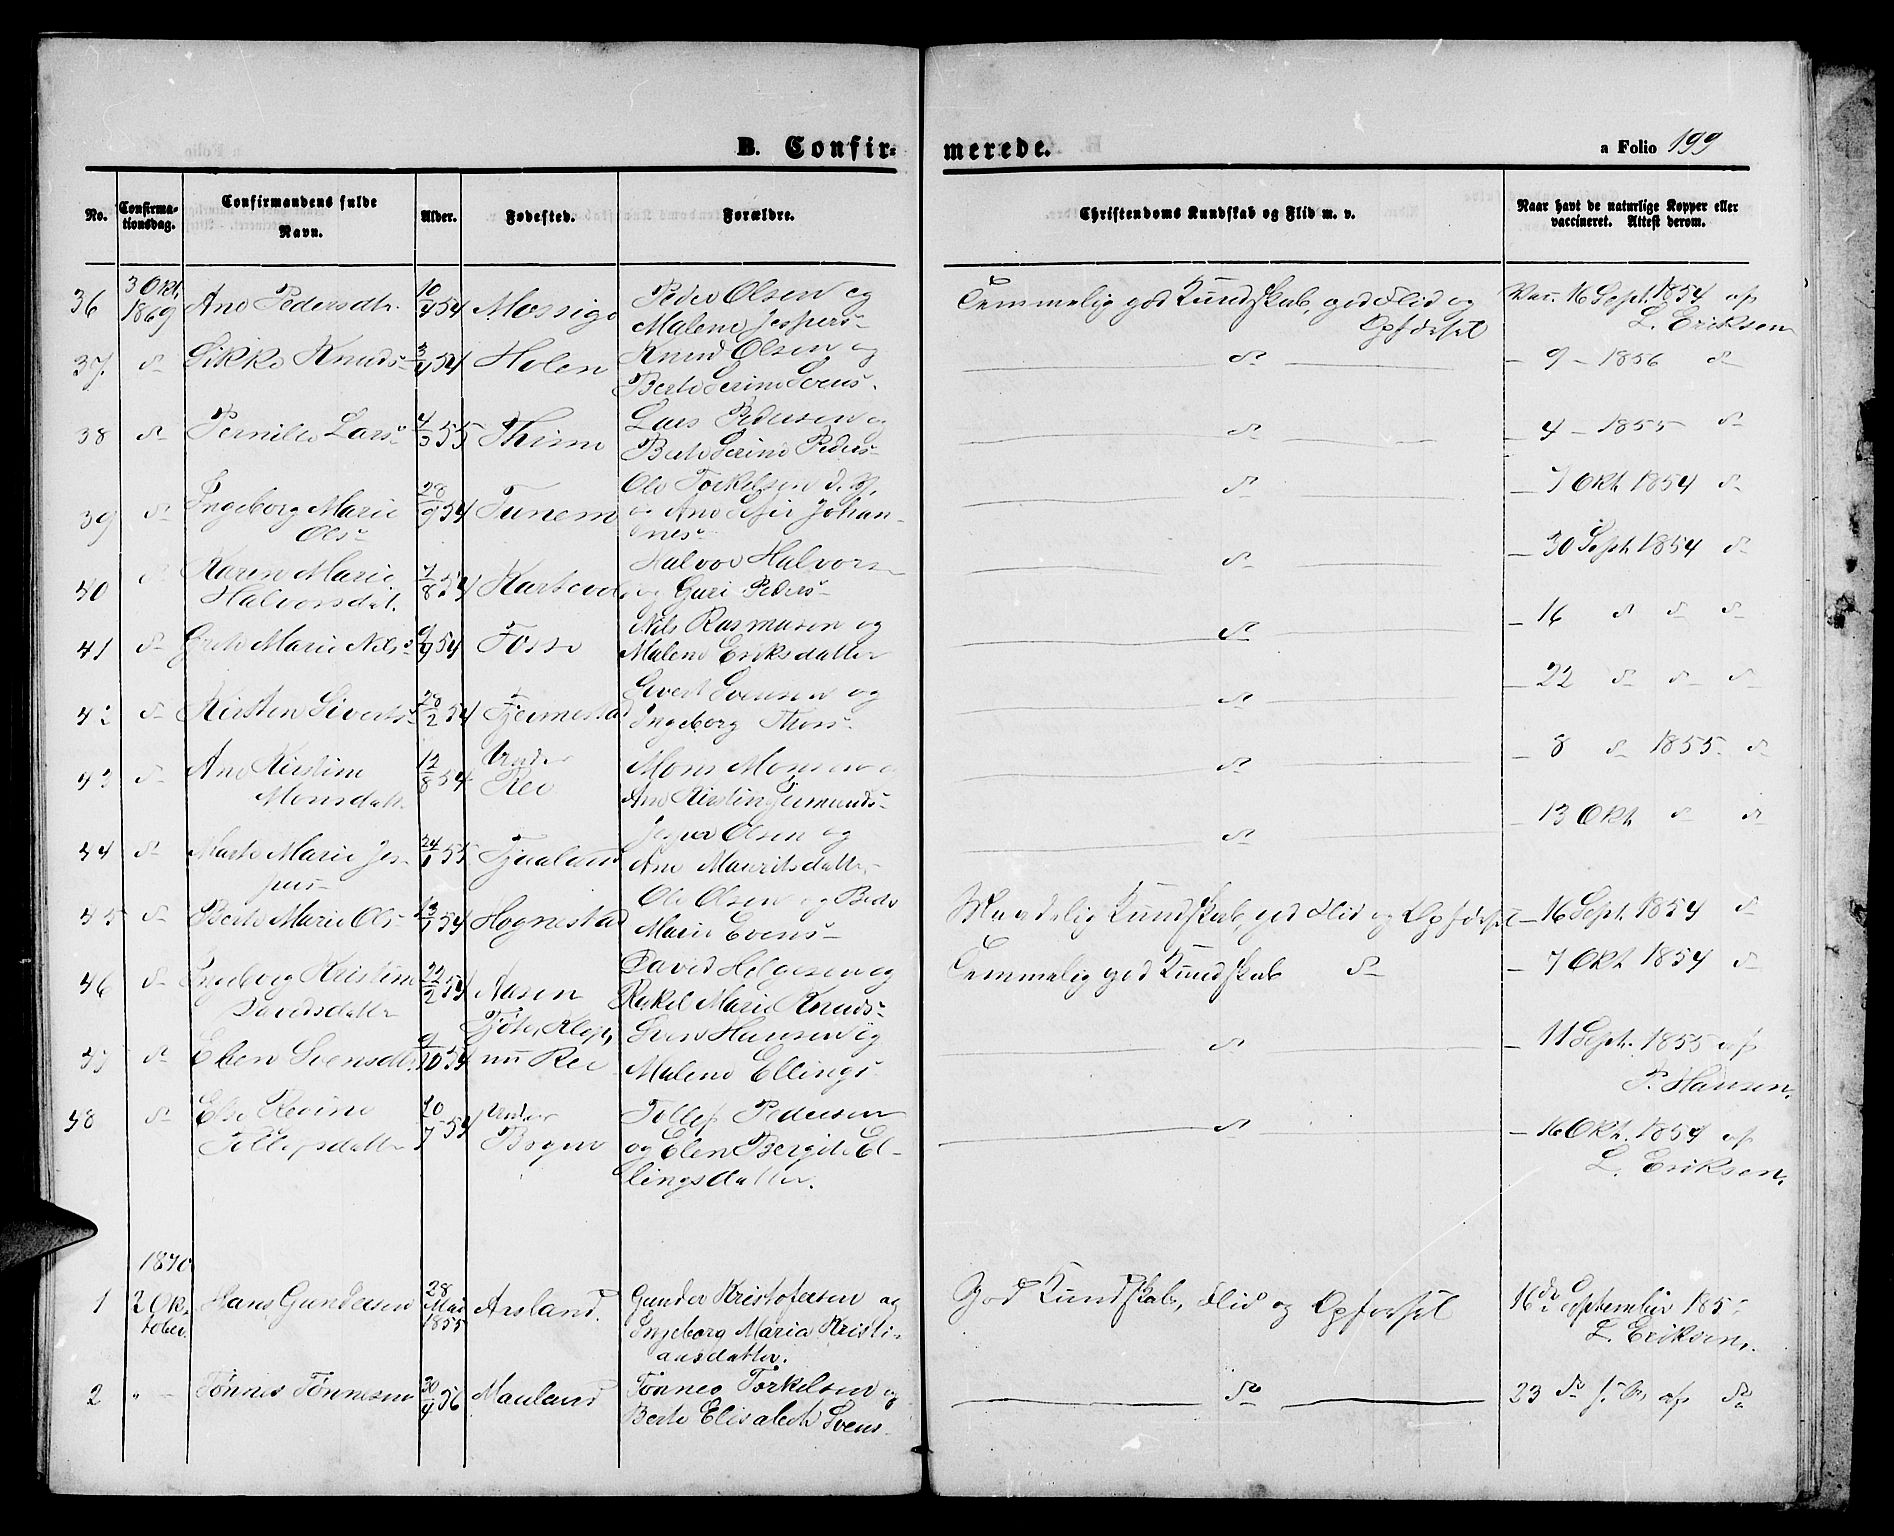 B. Confirmerede.
a Folio 199
No. Confirmationsdag. Confirmandens fulde Navn. Alder. Fødested. Forældre. Christendoms Kundskab og Flid m. v. Naar havt de naturlige Kopper eller vaccineret. Attest derom.
36 3 Okt. 1869 Ane Pedersdtr. 10/4 54 Mossige Peder Olsen og Malene Jespers- Temmelig god Kundskab, god Flid og Opførsel Vac. 16 Sept. 1854 af L. Eriksen
37 d- Sikke Knuds- 3/4 54 Holen Knud Olsen og Berte Serine Svens- d- - 9 - 1856 d-
38 d- Pernille Lars- 4/3 55 Thime Lars Pedersen og Berte Serine Peders- d- - 4 - 1855 d-
39 d- Ingeborg Marie Ols- 28/9 54 Tunem Ole Torkelsen d. y. og Ane Johannes- d- - 7 Okt. 1854 d-
40 d- Karen Marie Halvorsdat. 7/8 54 Halvor Halvors- og Guri Peders- d- - 30 Sept 1854 d-
41 d- Grete Marie Nils- 54 Fosse Nils Rasmusen og Malene Eriksdatter d- - 16 d- d- d-
42 d- Kirsten Siverts- 28/2 54 Fjermestad Sivert Svensen og Ingeborg Thors- d- - 22 d- d- d-
43 d- Ane Kirstine Monsdatt- 12/8 54 Under Ree Mons Monsen og Ane Kirstin d- - 8 d- 1855 d-
44 d- Marte Marie Jespers- 24/1 55 Jesper Olsen og Ane Mauritsdatter d- - 13 Okt d- d-
45 d- Berte Marie Ols- 54 Hognestad Ole Olsen og Marie Evens- Maadelig Kundskab, god Flid og Opførsel - 16 Sept. 1854 d-
46 d- Ingeborg Kristine Davidsdatter 22/2 54 Aasen David Helgesen og Rakel Marie Knuds- Temmelig god Kundskab d- - 7 Okt 1854 d-
47 d- Elen Svensdtr. 9/10 54 Klep, nu Ree Sven Hansen og Malene Ellings- d- - 11 Sept. 1855 af P. Hansen.
48 d- Else Tollefsdatter 10/7 54 Under Tollef Pedersen og Elen Bergite Ellingsdatter. d- - 16 Okt. 1854 af L. Eriksen.
1870
1 2 Oktober. Hans Gundersen 28 Mai 1855 Aasland. Gunder Kristofersen og Ingeborg Maria Kristiansdatter. God Kundskab, Flid og Opførsel 16de September 185 L. Eriksen.
2 " - Tønnes Tønnesen 30/4 56 Mauland Tønnes Torkelsen og Berte Elisabeth Svens- do 23 d- af do